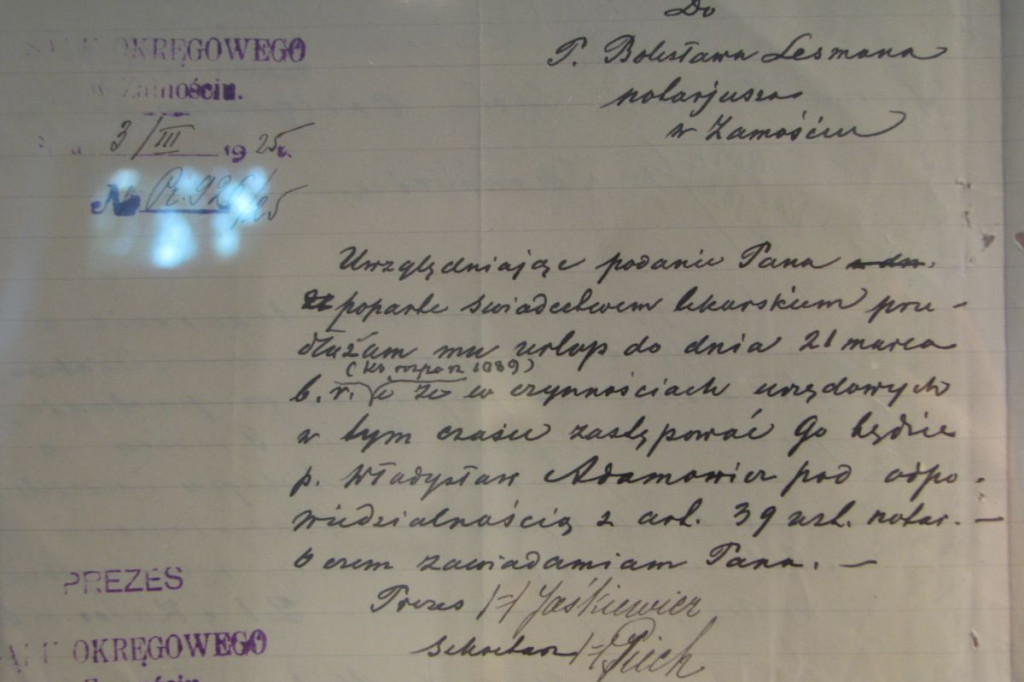 OKRĘGOWEGO
w Zamościu.
3/III 1925 r.
№ Pr. 92 /25
Do
P. Bolesława Lesmana
notarjusza
w Zamościu
Uwzględniając podanie Pana
poparte świadectwem lekarskiem prze-
dłużam mu urlop do dnia 21 marca
b.r. w czynnościach urzędowych
w tym czasie zastępować Go będzie
p. Władysław Adamowicz pod odpo-
wiedzialnością z art. 39 ust. notar. —
O czem zawiadamiam Pana. —
PREZES
Prezes /-/ Jaśkiewicz
OKRĘGOWEGO
Sekretarz /-/ Piech